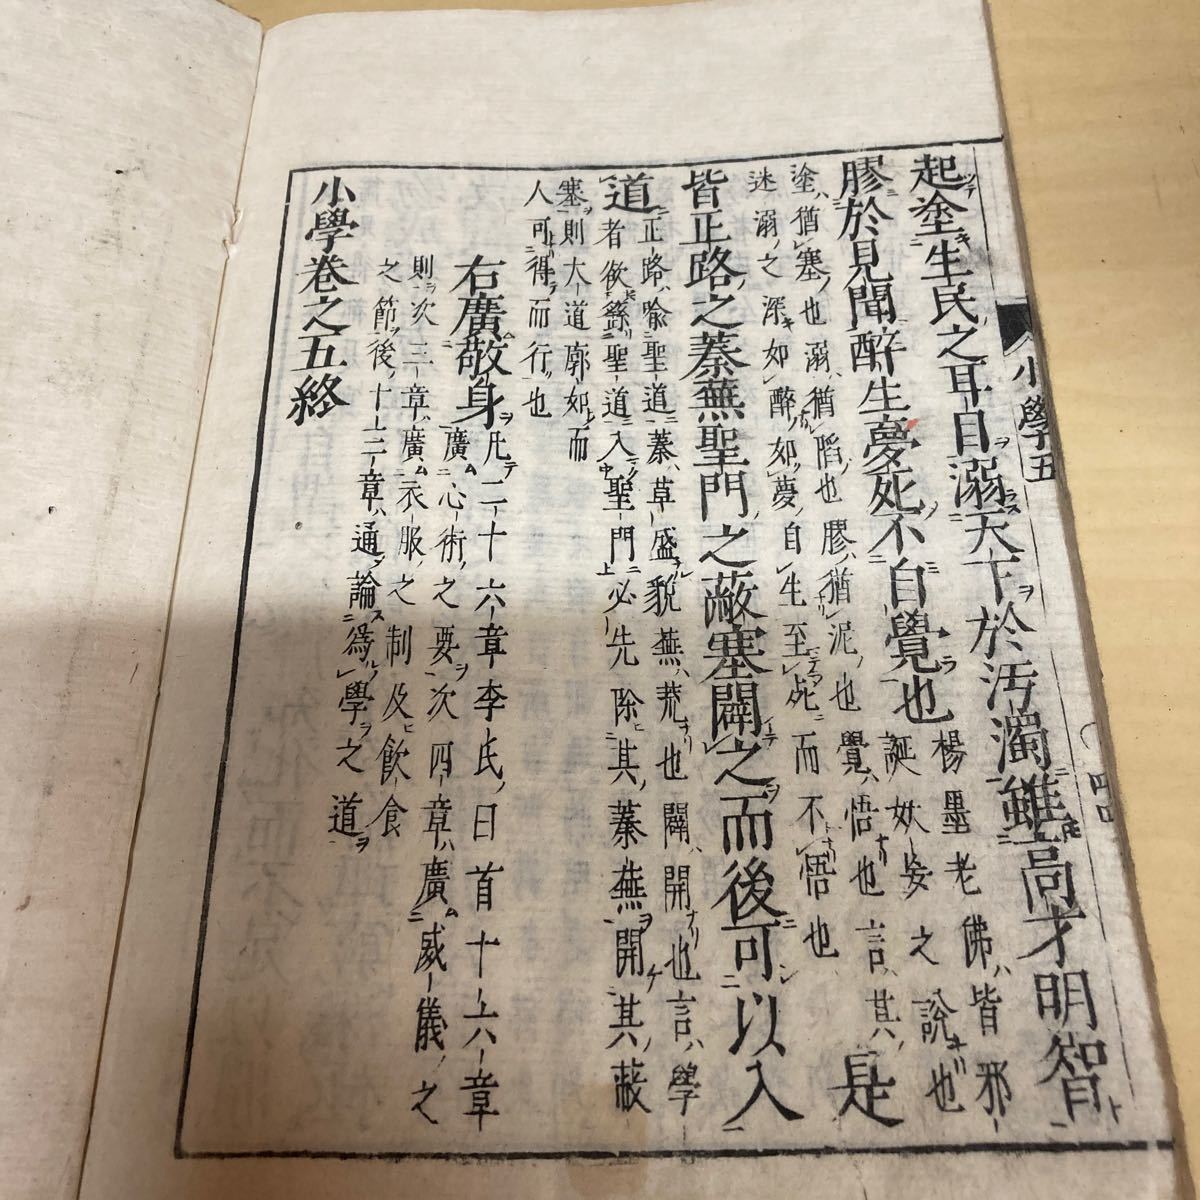 起塗生民之耳目溺天下於汚濁雖高才明智
膠於見聞醉生夢死不自覺也
楊墨老佛皆邪
誕妖妄之說也
是
塗猶塞也溺猶陷也膠猶泥也覺悟也言其
迷溺之深如醉如夢自生至死而不悟也
皆正路之蓁蕪聖門之蔽塞闢之而後可以入
道
正路喩聖道蓁草盛貌蕪荒也闢開也言學
者欲繇聖道入聖門必先除其蓁蕪開其蔽
塞則大道廓如而
人可得而行也
右廣敬身
凡二十六章李氏曰首十六章
廣心術之要次四章廣威儀之
則次三章廣衣服之制及飮食
之節後十二章通論爲學之道
小學卷之五終
小學五